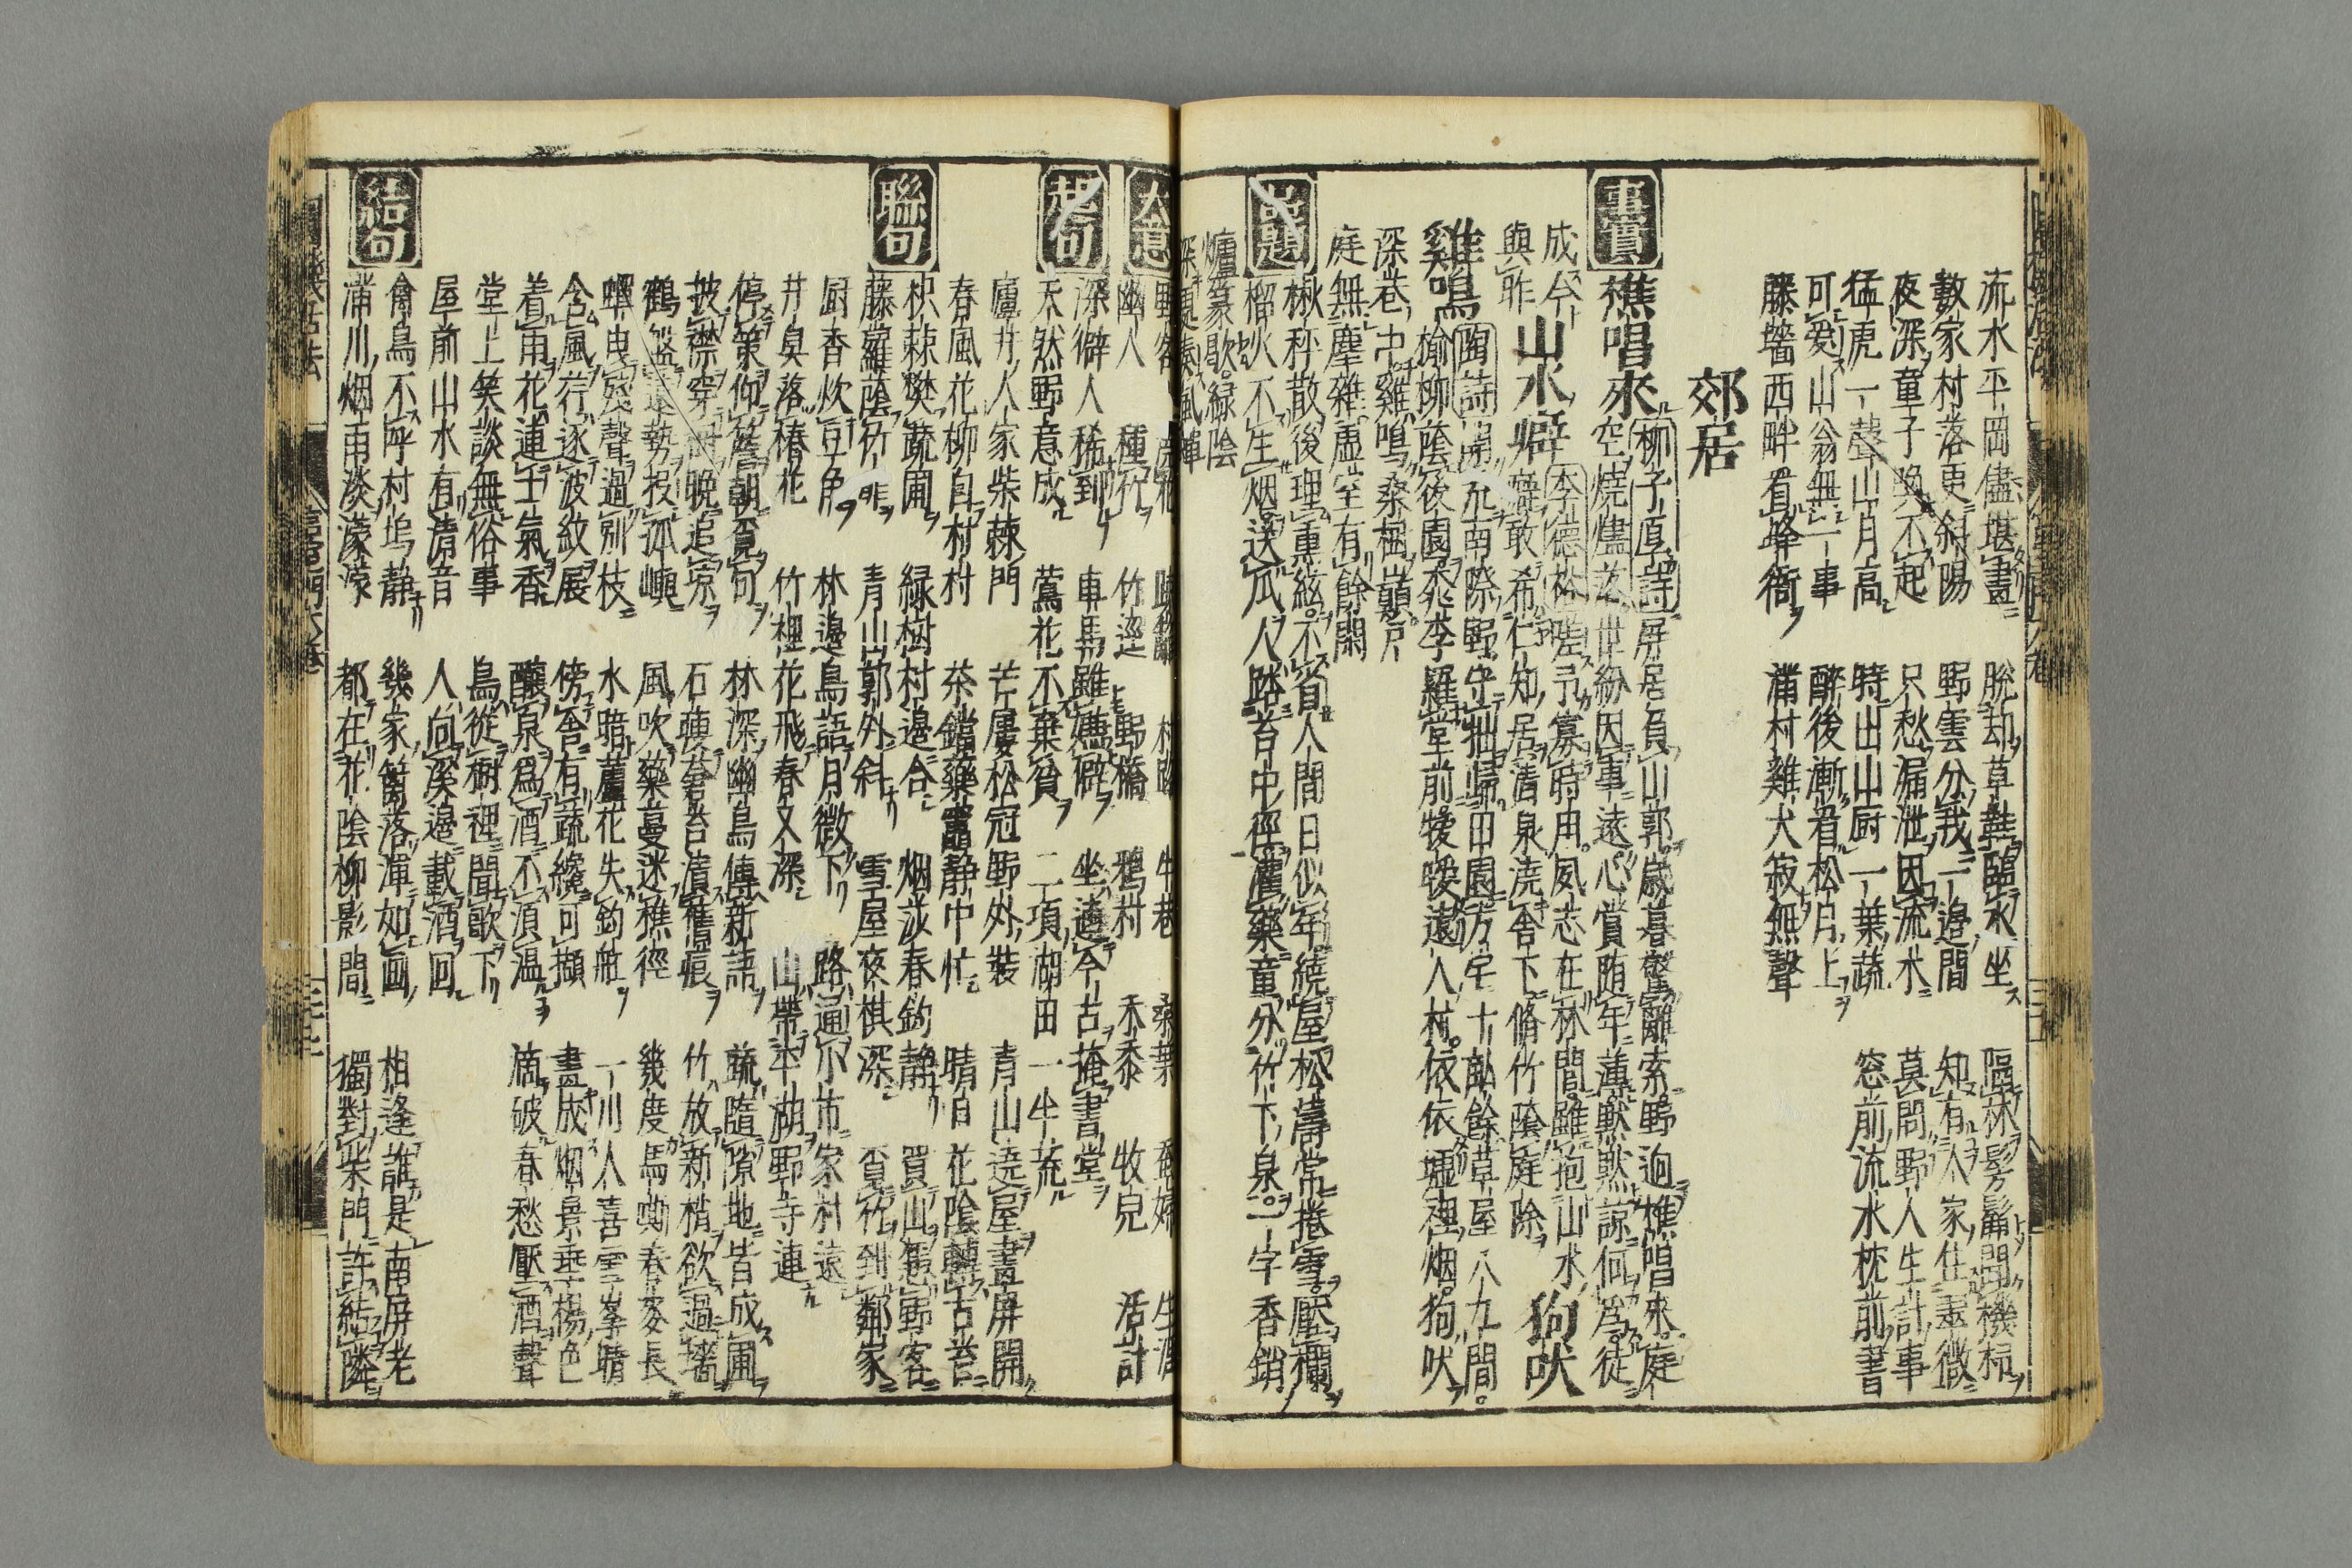 流水平岡儘堪畫 脫却草鞋臨水坐 隔林髣髴聞機杼
數家村落更斜陽 野雲分我一邊間 知有人家住翠微
夜深童子喚不起 只愁漏泄因流水 莫問野人生計事
猛虎一聲山月高 時出山厨一葉蔬 窓前流水枕前書
可愛山翁無一事 醉後漸看松月上
藤墻西畔看蜂衙 滿村雞犬寂無聲
郊居
事實
樵唱來 柳子厚詩 屏居負山郭歲暮驚離索野迥樵唱來庭
空燒燼落世紛因事遠心賞隨年薄默默諒何爲徒
成今
與昨 山水癖 李德裕 嗟予寡時用夙志在林間雖抱山水
癖敢希仁知居清泉澆舍下脩竹蔭庭除 狗吠
雞鳴 陶詩 開荒南際野守拙歸田園方宅十畝餘草屋八九間
榆柳蔭後園桃李羅堂前曖曖遠人村依依墟里烟狗吠
深巷中雞鳴桑樹巓戶
庭無塵雜虛室有餘閑
品題
楸枰散後理熏絃不省人間日似年繞屋松濤常捲雪壓欄
榴火不生烟送瓜人踏苔中徑灌藥童分竹下泉一字香銷
爐篆歇綠陰
深夏奏風蟬
大意
幽人 種竹 竹逕 野橋 鴉村 禾黍 牧兒 活計
起句
深僻人稀到 車馬雖嫌僻 坐邊今古掩書堂
天然野意成 鶯花不棄貧 二項湖田一半荒
廬井人家柴棘門 芒屨松冠野外裝 青山遶屋畫屏開
春風花柳自村村 茶鐺藥竈靜中忙 晴日花陰轉古苔
聯句
枳棘樊蔬圃 綠樹村邊合 烟莎春釣靜 買山慙野客
藤蘿蔭竹扉 青山郭外斜 雪屋夜棋深 看竹到鄰家
厨香炊豆角 林邊鳥語月微下 路通小市家村遠
井臭落椿花 竹裡花飛春又深 山帶平湖野寺連
停策仰簷朝覓句 林深幽鳥傳新語 蔬隨隙地皆成圃
披襟穿柳晚追凉 石陳蒼苔漬舊痕 竹放新梢欲過墻
鶴盤遠勢投孤嶼 風吹藥蔓迷樵徑 幾度馬嘶春麥長
蟬曳殘聲過別枝 水暗蘆花失釣舩 一川人喜雪峯晴
含風荇逐波紋展 傍舎有蔬纔可擷 畫成烟景垂楊色
着雨花連土氣香 釀泉爲酒不須温 滴破春愁壓酒聲
堂上笑談無俗事 鳥從樹裡聞歌下
屋前山水有清音 人向溪邊載酒回
結句
禽鳥不呼村塢靜 幾家籬落渾如画 相逢誰是南屏老
滿川烟雨淡濛濛 都在花陰柳影間 獨對柴門許結隣